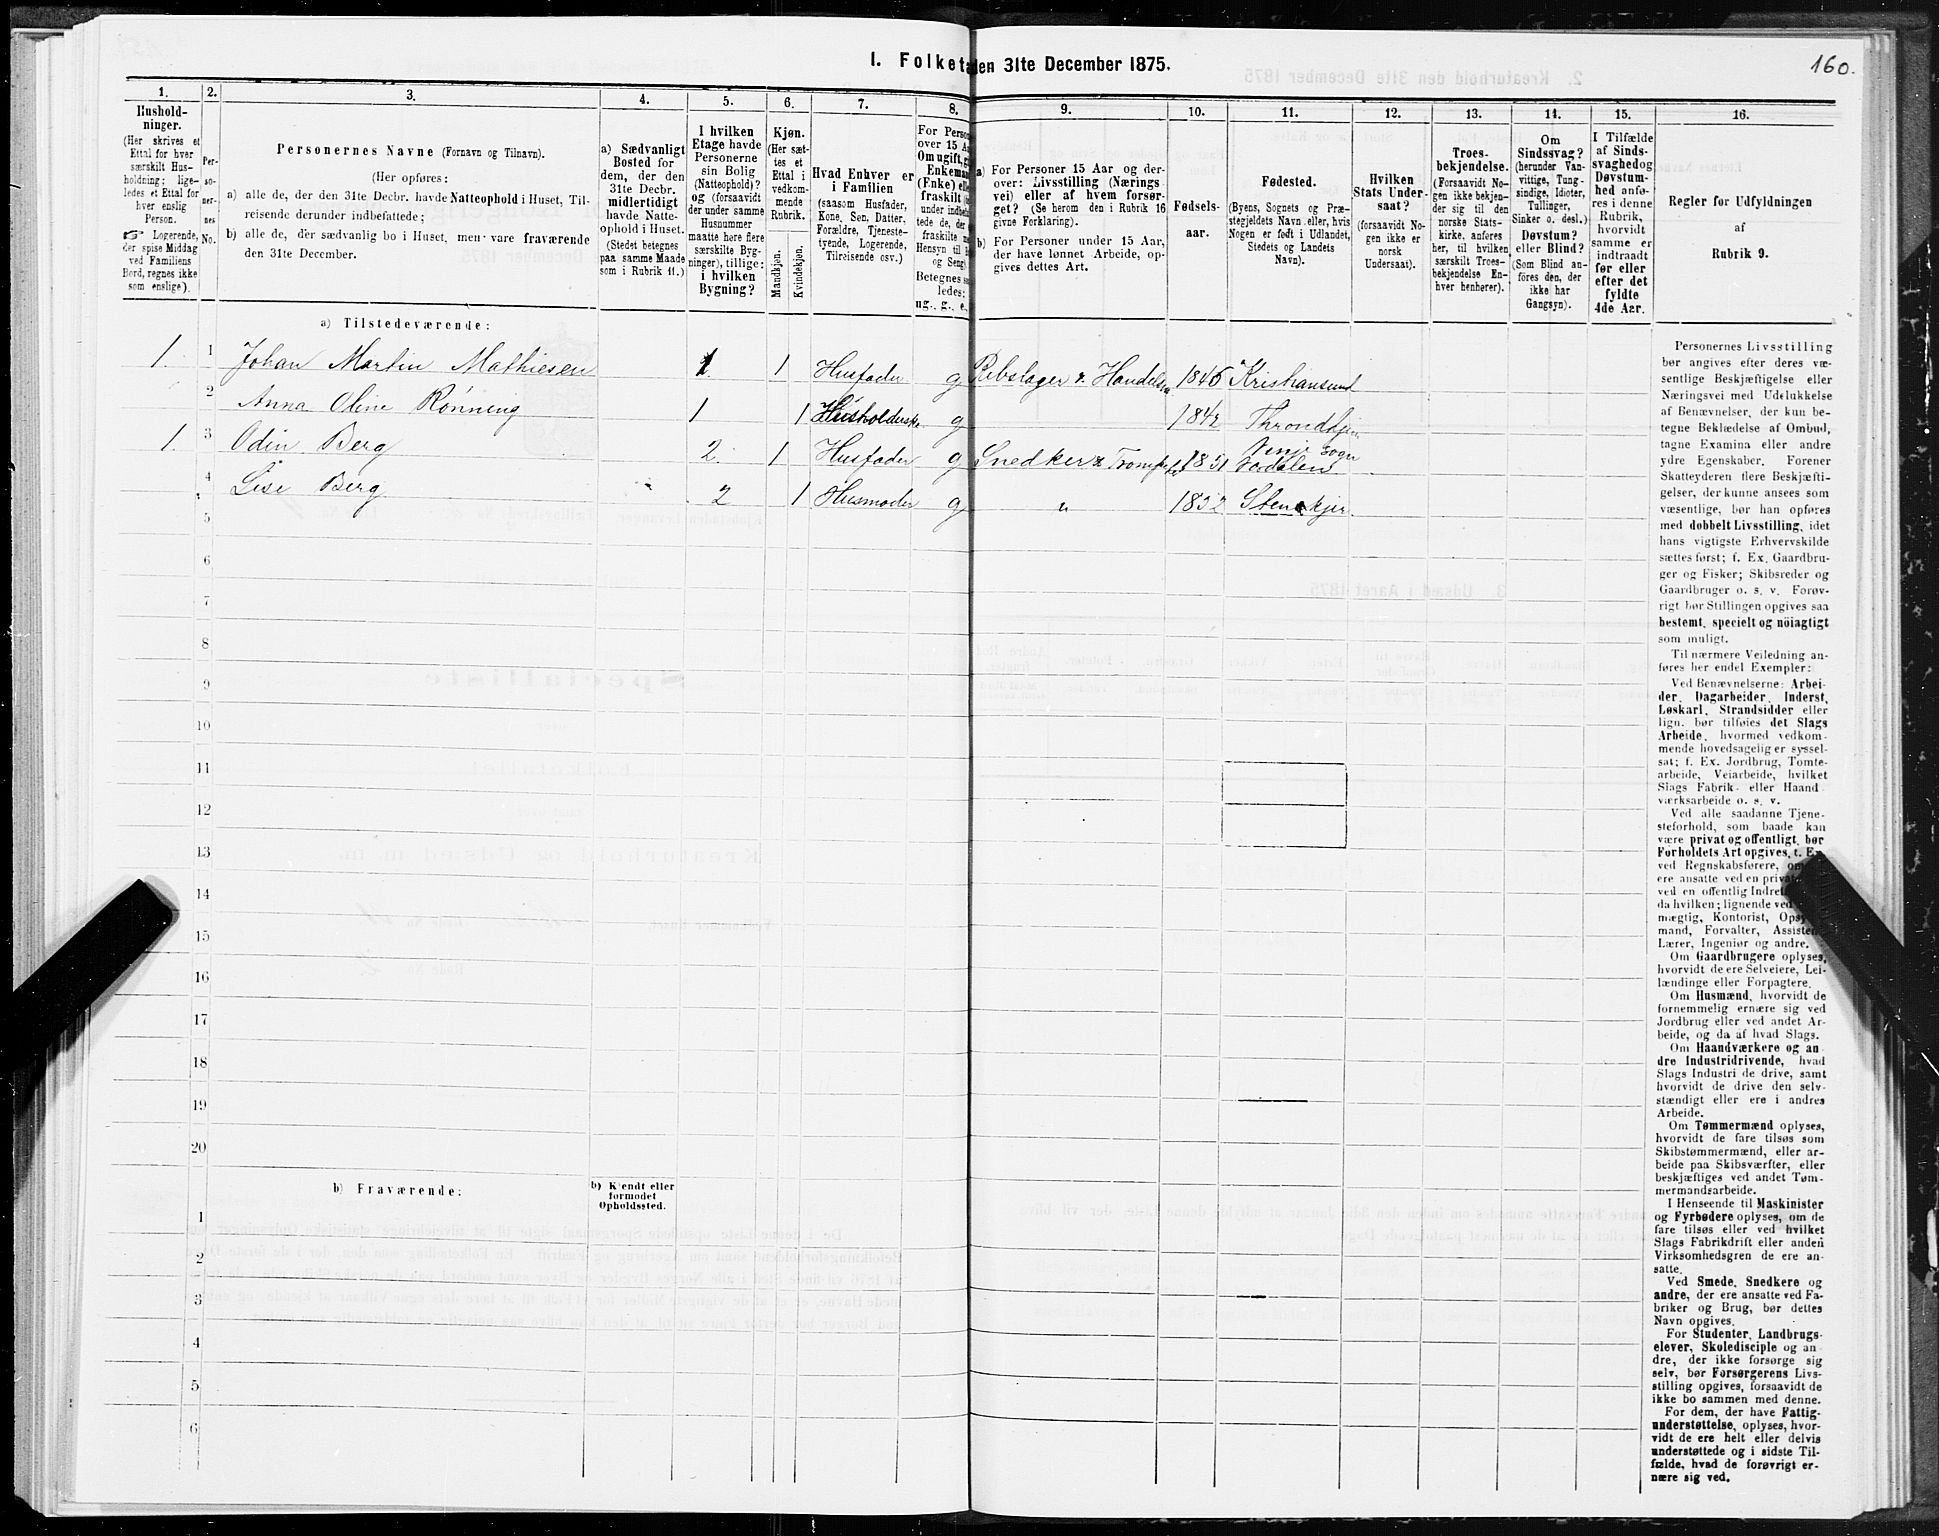 160.
I. Folketa
den 31te December 1875.
1.
2.
3.
4.
5.
6.
7.
8.
9.
10.
11.
12.
13.
14.
15.
16.
Hushold-
ninger.
(Her skrives et
Ettal for hver
særskilt Hus-
holdning; lige-
ledes et Ettal for
hver enslig
Person.
☞ Logerende,
der spise Middag
ved Familiens
Bord, regnes ikke
som enslige).
Per-
so-
ner-
nes
No.
Personernes Navne (Fornavn og Tilnavn).
(Her opføres:
a) alle de, der den 31te Decbr. havde Natteophold i Huset, Til-
reisende derunder indbefattede;
b) alle de, der sædvanlig bo i Huset, men vare fraværende
den 31te December.
a) Sædvanligt
Bosted for
dem, der den
31te Decbr.
midlertidigt
havde Natte-
ophold i Huset.
(Stedet betegnes
paa samme Maade
som i Rubrik 11.)
I hvilken
Etage havde
Personerne
sin Bolig
(Natteophold)?
og (forsaavidt
der under samme
Husnummer
maatte høre flere
særskilte Byg-
ninger), tillige:
i hvilken
Bygning?
Kjøn.
(Her sæt-
tes et
Ettal i
vedkom-
mende
Rubrik.
Mandkjøn.
Kvindekjøn.
Hvad Enhver er
i Familien
(saasom Husfader,
Kone, Søn, Datter,
Forældre, Tjeneste-
tyende, Logerende,
Tilreisende osv.)
For Person
over 15 Aa
Om ugift, gi
Enkeman
(Enke) elle
fraskilt
under indbef
tede de, der
fraskilte m
Hensyn til B
og Seng)
Betegnes saa
ledes:
ug., g., e.
a) For Personer 15 Aar og der-
over: Livsstilling (Nærings
vei) eller af hvem forsør-
get? (Se herom den i Rubrik 16
givne Forklaring).
b) For Personer under 15 Aar,
der have lønnet Arbeide, op-
gives dettes Art.
Fødsels-
aar.
Fødested.
(Byens, Sognets og Præ-
stegjeldets Navn eller, hvis
Nogen er født i Udlandet,
Stedets og Landets
Navn).
Hvilken
Stats Under-
saat?
(forsaavidt No-
gen ikke er
norsk
Undersaat).
Troes-
bekjendelse.
(Forsaavidt No-
gen ikke bekjen-
der sig til den
norske Stats-
kirke, anføres
her, til hvilken
særskilt Troes-
bekjendelse En-
hver henhører).
Om
Sindssvag?
(herunder Van-
vittige, Tung-
sindige, Idioter,
Tullinger,
Sinker o. desl.)
Døvstum?
eller Blind?
(Som Blind an-
føres den, der
ikke har
Gangsyn).
I Tilfælde
af Sinds-
svaghed og
Døvstum-
hed anfø-
res i denne
Rubrik,
hvorvidt
samme er
indtraadt
før eller
efter det
fyldte
4de Aar.
Regler for Udfyldningen
af
Rubrik 9.
a) Tilstedeværende:
1. 1 Johan Martin Mathiesen 1 1 Husfader g Rebslager v. 1845 Kristiansund
2 Anna Oline Rønning 1 1 Husholderske g 1842 Throndhjem
1. 3 Odin Berg 2 1 Husfader g Snedker 1831
4 Lise Berg 2 1 Husmoder g " 1832 Stenkjer
5
6
7
8
9
10
11
12
13
14
15
16
17
18
19
20
b) Fraværende:
b) Kjendt eller
formodet
Opholdssted.
1
2
3
4
5
6
Personernes Livsstilling
bør angives efter deres væ-
sentlige Beskjæftigelse eller
Næringsvei med Udelukkelse
af Benævnelser, der kun be-
tegne Beklædelse af Ombud,
tagne Examina eller andre
ydre Egenskaber. Forener
Skatteyderen flere Beskjæfti-
gelser, der kunne ansees som
væsentlige, bør han opføres
med dobbelt Livsstilling, idet
hans vigtigste Erhvervskilde
sættes først; f. Ex. Gaardbru-
ger og Fisker; Skibsreder og
Gaardbruger o. s. v. Forøv-
rigt bør Stillingen opgives saa
bestemt, specielt og nöiagtigt
som muligt.
Til nærmere Veiledning an-
føres her endel Exempler:
Ved Benævnelserne: Arbei-
der, Dagarbeider, Inderst,
Løskarl, Strandsidder eller
lign. bør tilføies det Slags
Arbeide, hvormed vedkom-
mende hovedsagelig er syssel-
sat; f. Ex. Jordbrug, Tomte-
arbeide, Veiarbeide, hvilket
Slags Fabrik- eller Haand
værksarbeide o. s. v.
Ved alle saadanne Tjene-
steforhold, som baade kan
være privat og offentligt, bør
Forholdets Art opgives, t. Ex
ved Regnskabsførere, om
ere ansatte ved en privat
ved en offentlig Indret
da hvilken; lignende ved
mægtig, Kontorist, Opsy
mand, Forvalter, Assisten
Lærer, Ingeniør og andre.
Om Gaardbrugere oplyses,
hvorvidt de ere Selveiere, Lei-
lændinge eller Forpagtere.
Om Husmænd, hvorvidt de
fornemmelig ernære sig ved
Jordbrug eller ved andet Ar-
beide, og da af hvad Slags.
Om Haandværkere og an
dre Industridrivende, hvad
Slags Industri de drive, samt
hvorvidt de drive den selv-
stændigt eller ere i andres
Arbeide.
Om Tømmermænd oplyses,
hvorvidt de fare tilsøs som
Skibstømmermænd, eller ar-
beide paa Skibsværfter, eller
beskjæftiges ved andet Tøm-
mermandsarbeide.
I Henseende til Maskinister
og Fyrbødere oplyses, om de
fare tilsøs eller ved hvilket
Slags Fabrikdrift eller anden
Virksomhedsgren de ere an-
satte.
Ved Smede, Snedkere og
andre, der ere ansatte ved Fa-
briker og Brug, bør dettes
Navn opgives.
For Studenter, Landbrugs-
elever, Skoledisciple og an
dre, der ikke forsørge sig
selv, bør Forsørgerens Livs-
stilling opgives, forsaavidt de
ikke bo sammen med denne.
For dem, der have Fattig-
understøttelse, oplyses, hvor-
vidt de ere helt eller delvis
understøttede og i sidste Til-
fælde, hvad de forøvrigt er-
nære sig ved.